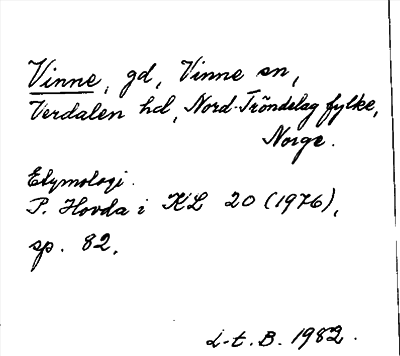 Vinne, gd, Vinne sn,
Verdalen hd, Nord-Tröndelag fylke,
Norge.
Etymologi.
P. Hovda i KL 20 (1976),
sp. 82.
L-t. B. 1982.